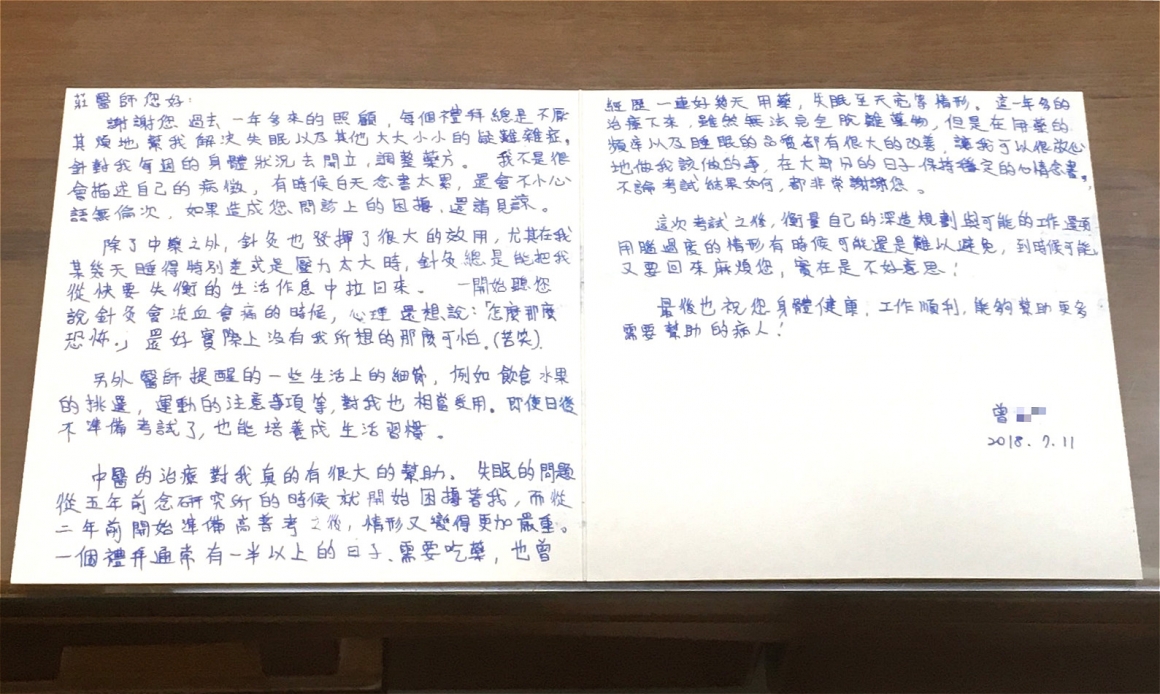 莊醫師您好:
謝謝您過去一年多來的照顧,每個禮拜總是不厭
其煩地幫我解決失眠以及其他大大小小的疑難雜症。
針對我每週的身體狀況去開立,調整藥方。 我不是很
會描述自己的病徵,有時候白天念書太累,還會不小心
語無倫次,如果造成您問診上的困擾,還請見諒。
除了中藥之外,針灸也發揮了很大的效用,尤其在我
某幾天睡得特別差或是壓力太大時,針灸總是能把我
從快要失衡的生活作息中拉回來。 一開始聽您
說針灸會流血會痛的時候,心理還想說:「怎麼那麼
恐怖。」還好實際上沒有我所想的那麼可怕。(苦笑)
另外醫師提醒的一些生活上的細節,例如飲食水果
的挑選,運動的注意事項等,對我也相當受用。即使日後
不準備考試了,也能培養成生活習慣。
中醫的治療對我真的有很大的幫助。 失眠的問題
從五年前念研究所的時候就開始困擾著我,而從
二年前開始準備高普考之後,情形又變得更加嚴重。
一個禮拜通常有一半以上的日子、需要吃藥,也曾
經歷一連好幾天用藥,失眠至天亮等情形。這一年多的
治療下來,雖然無法完全脫離藥物,但是在用藥的
頻率以及睡眠的品質都有很大的改善,讓我可以很放心
地做我該做的事,在大部分的日子保持穩定的心情念書。
不論考試結果如何,都非常謝謝您。
這次考試之後,衡量自己的深造規劃與可能的工作選項
用腦過度的情形有時候可能還是難以避免,到時候可能
又要回來麻煩您,實在是不好意思!
最後也祝您身體健康,工作順利,能夠幫助更多
需要幫助的病人!
曾
2018.7.11